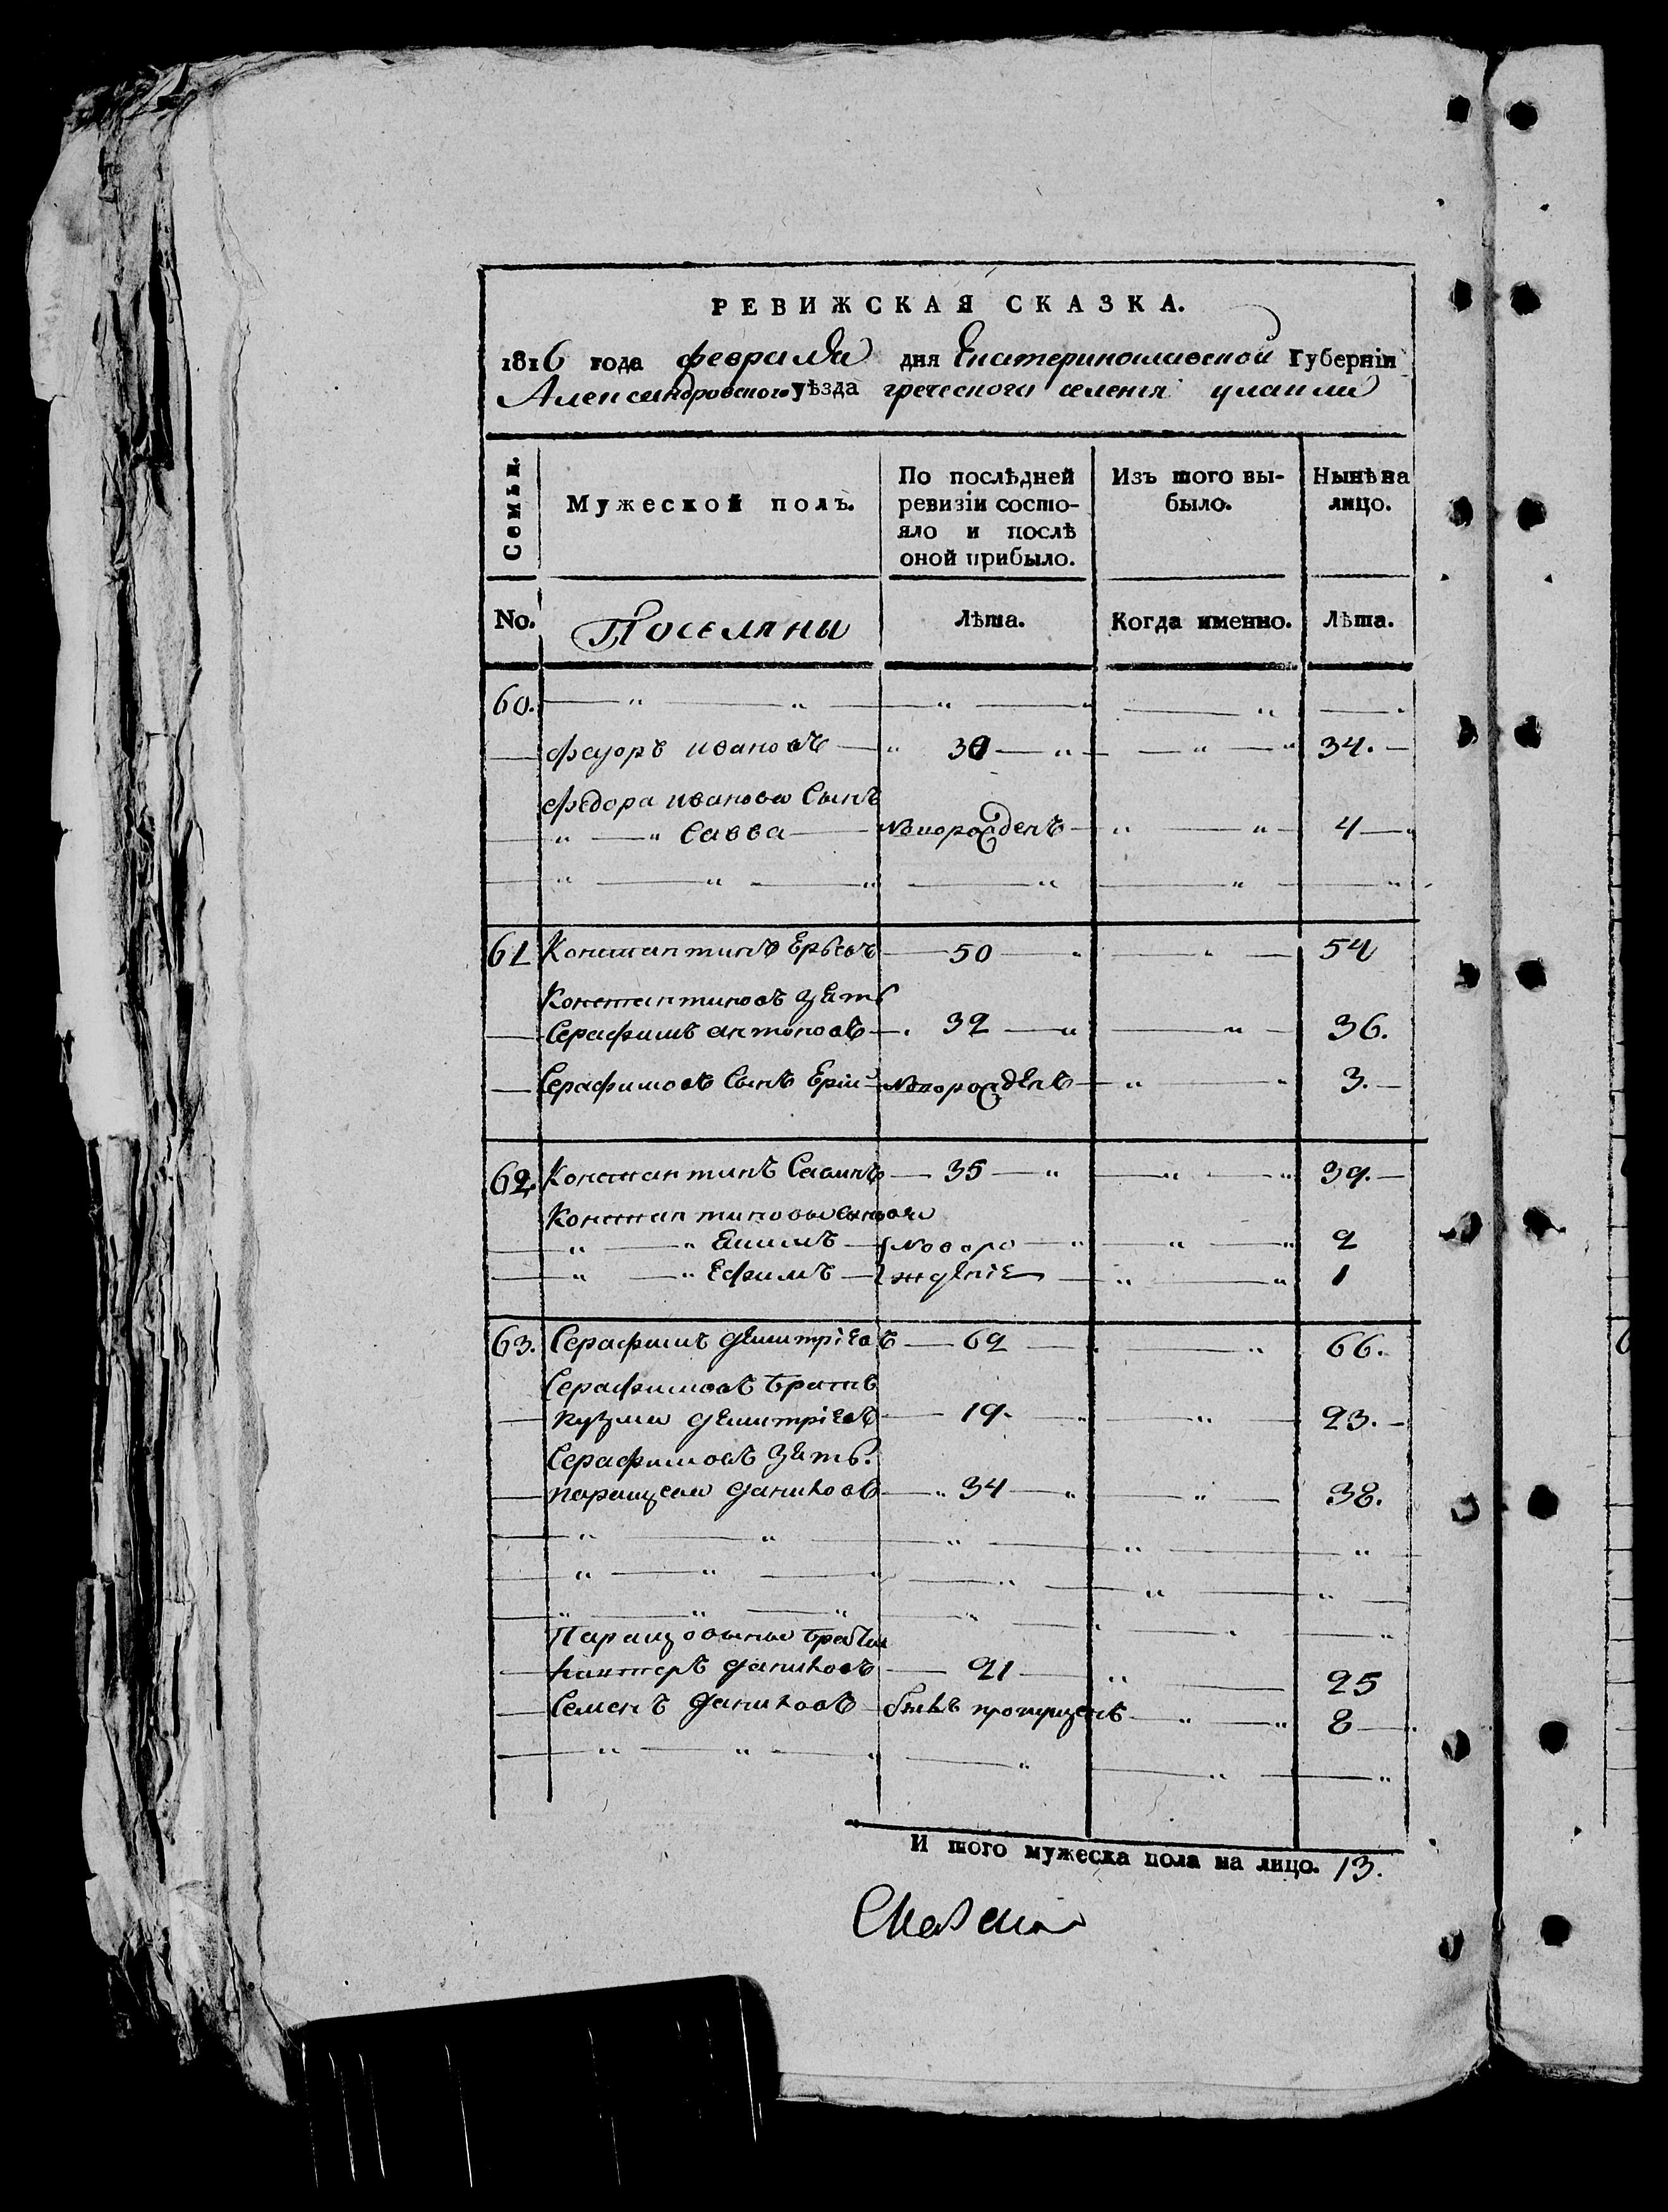 РЕВИЖСКАЯ СКАЗКА.
1816 года февраля дня Екатеринославской Губерніи
Александровскаго уѣзда греческаго селенія улаклы
Семьи.
Мужеской полъ.
По послѣдней ревизіи состояло и послѣ оной прибыло.
Изъ того выбыло.
Нынѣ на лицо.
No. Поселяны Лѣта. Когда именно. Лѣта.
60.
Фауоръ ивановъ 30 34.
Федора иванова Сынъ
Савва новорожденъ 4
61 Константинъ Ерьевъ 50 54
Константиновъ зять
Серафимъ антоновъ 32 36.
Серафимовъ Сынъ Ерій новорожденъ 3.
62. Константинъ Савинъ 35 39.
Константиновы сыновя
Екимъ новоро 2
Ефимъ жденіе 1
63. Серафимъ Димитріевъ 62 66.
Серафимовъ братъ
кузма Димитріевъ 19. 23.
Серафимовъ Зять.
Даниловъ 34 38.
братья
Даниловъ 21 25
Семенъ Даниловъ былъ пропущенъ 8
И того мужеска пола на лицо. 13.